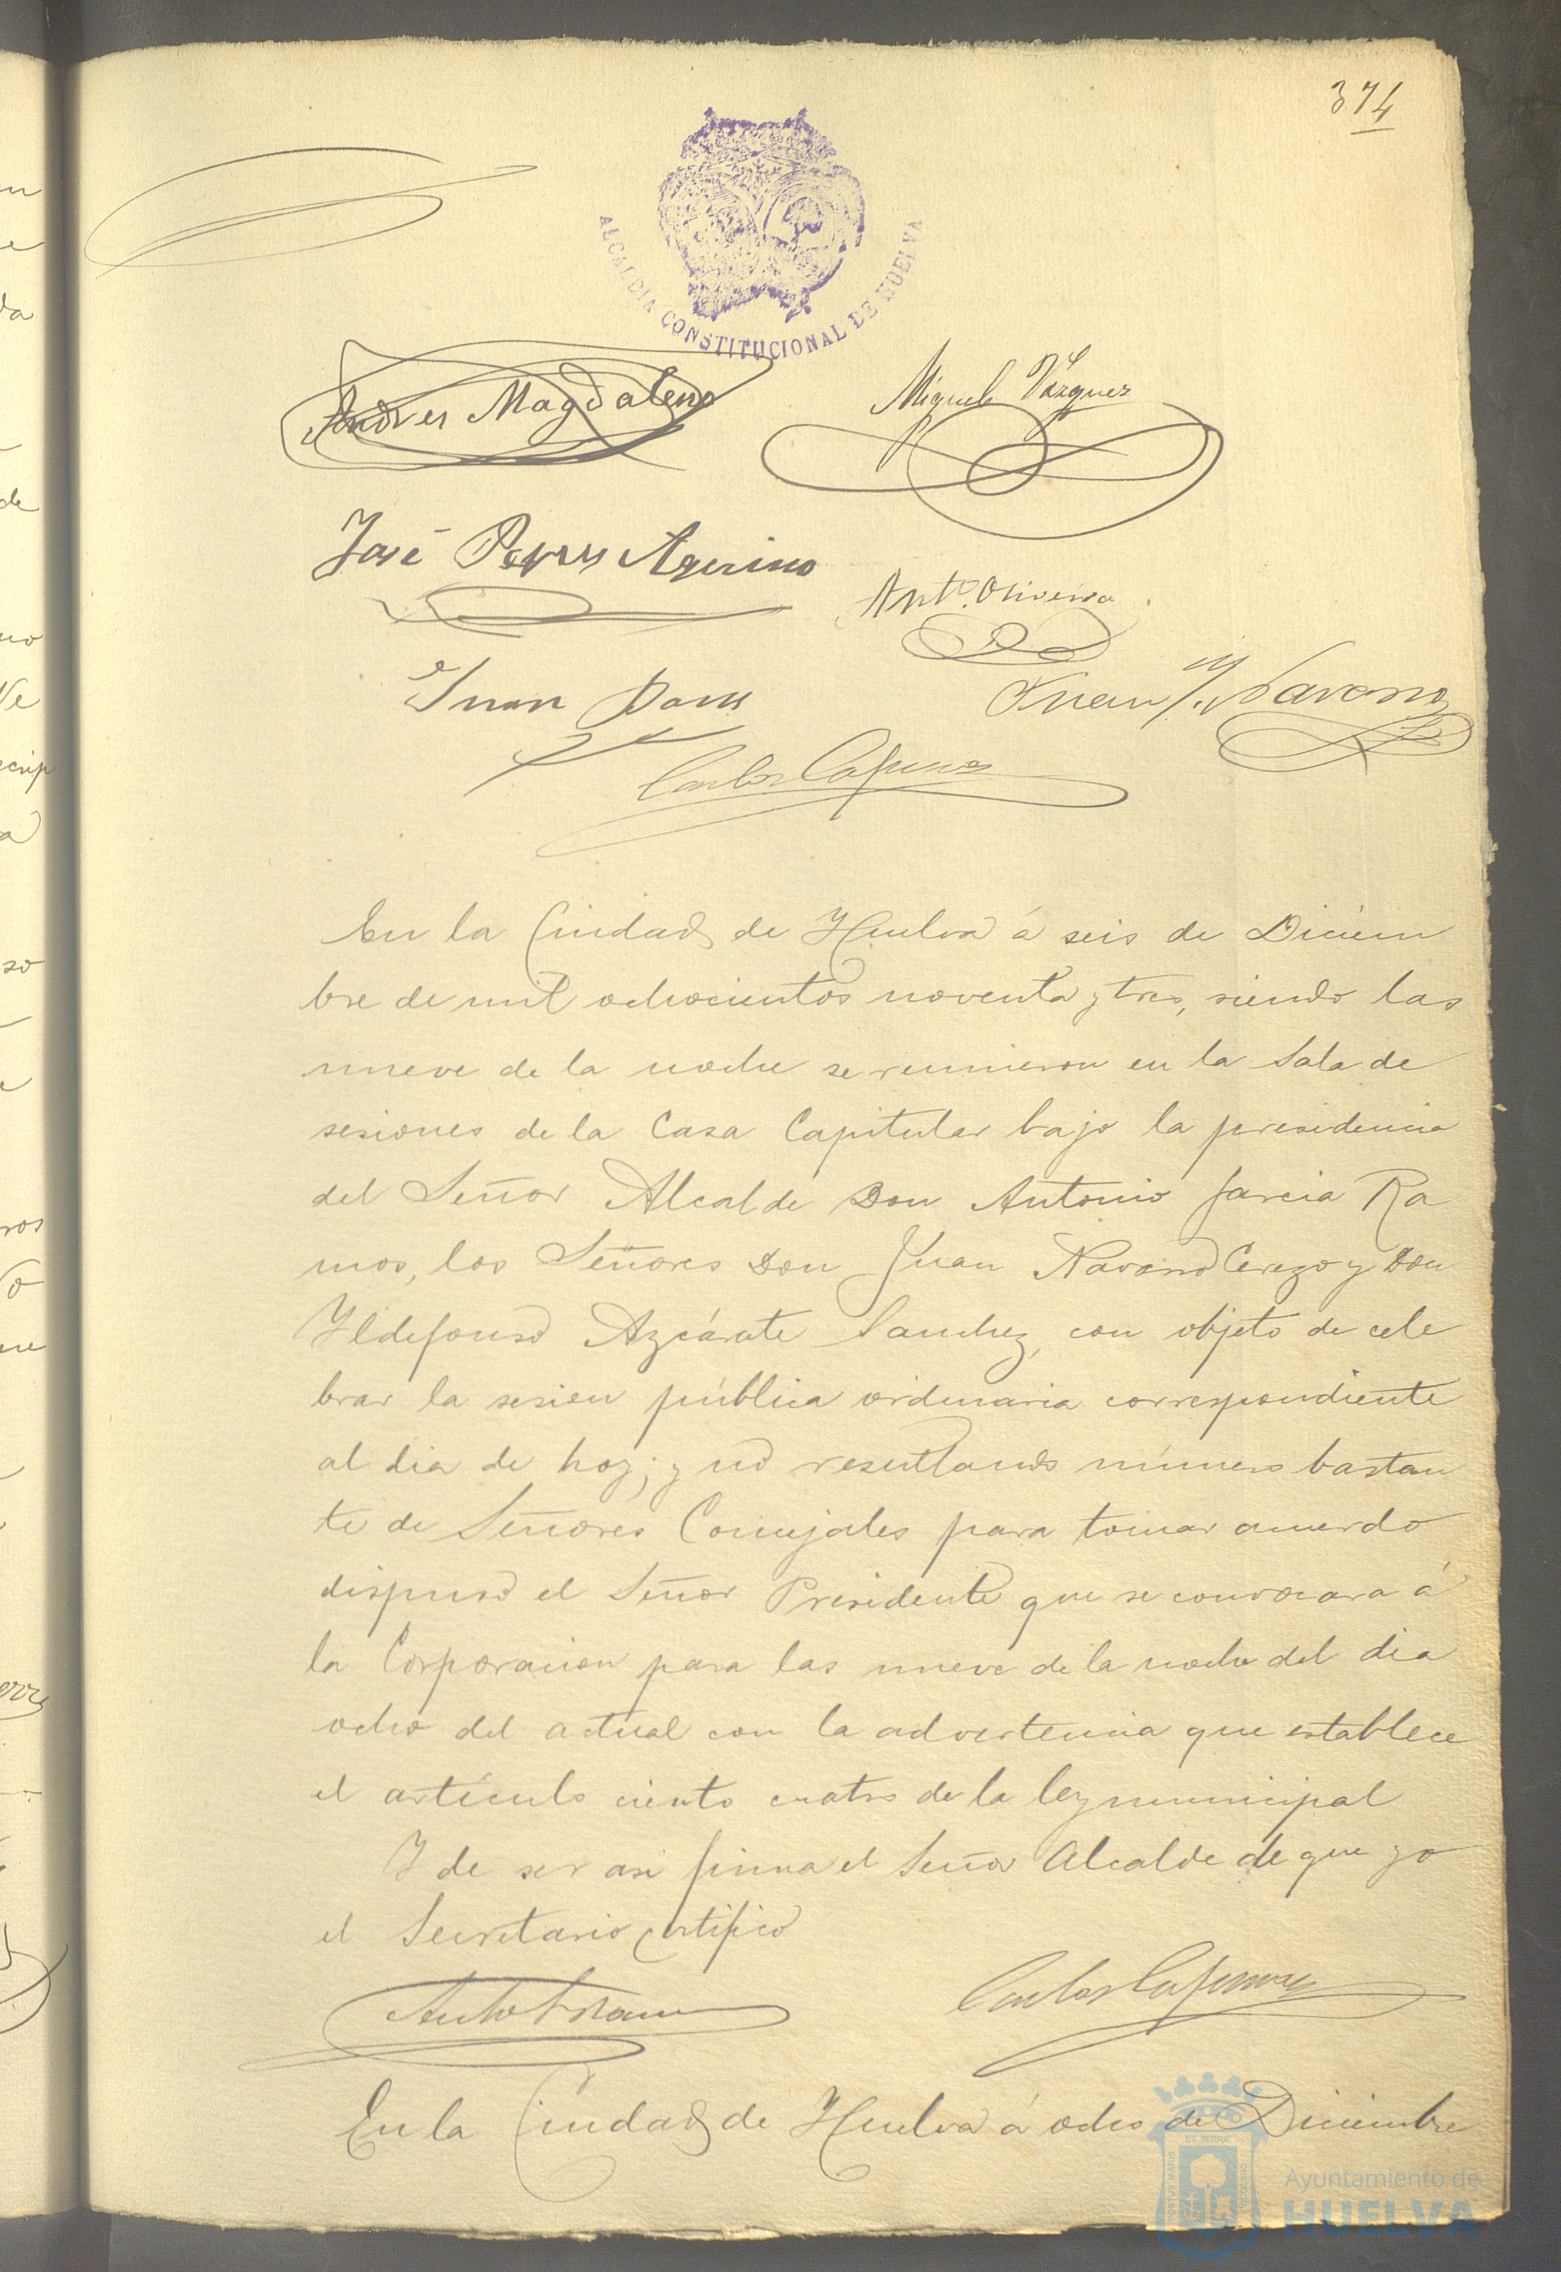 374
ALCALDIA CONSTITUCIONAL DE HUELVA
Andres Magdaleno
Miguel Vazquez
José Agerino
Anto. Olivera
Juan
Juan J. Navarro
Carlos
En la Ciudad de Huelva á seis de Diciem
bre de mil ochocientos noventa y tres, siendo las
nueve de la noche se reunieron en la Sala de
sesiones de la Casa Capitular bajo la presidencia
del Señor Alcalde Don Antonio Garcia Ra
mos, los Señores Don Juan Navarro Cerezo y Don
Yldefonso Azcárate Sanchez, con objeto de cele
brar la sesion pública ordinaria correspondiente
al dia de hoy; y no resultando número bastan
te de Señores Concejales para tomar acuerdo
dispuso el Señor Presidente que se convocara á
la Corporacion para las nueve de la noche del dia
ocho del actual con la advertencia que establece
el artículo ciento cuatro de la ley municipal
Y de ser asi firma el Señor Alcalde de que yo
el Secretario certifico
Carlos
En la Ciudad de Huelva á ocho de Diciembre
Ayuntamiento de
HUELVA